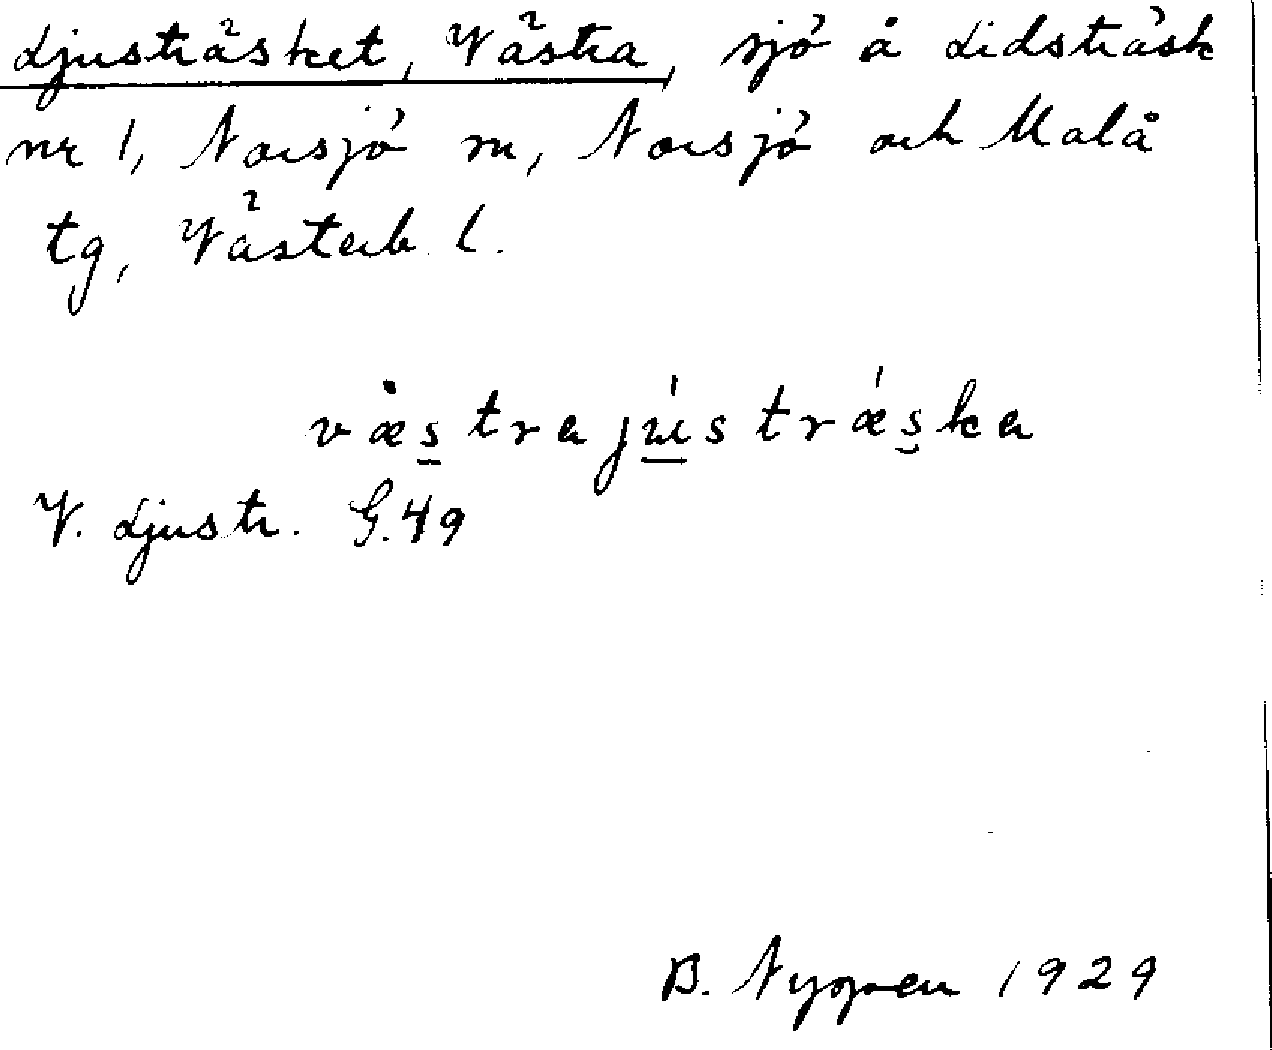 Ljusträsket, Västra, sjö å Lidsträsk
nr 1, Norsjö sn, Norsjö och Malå
tg, Västerb. l.
væ̇s̱trajú̱strǽs̮ka
V. Ljustr. G.49
B. Nygren 1929